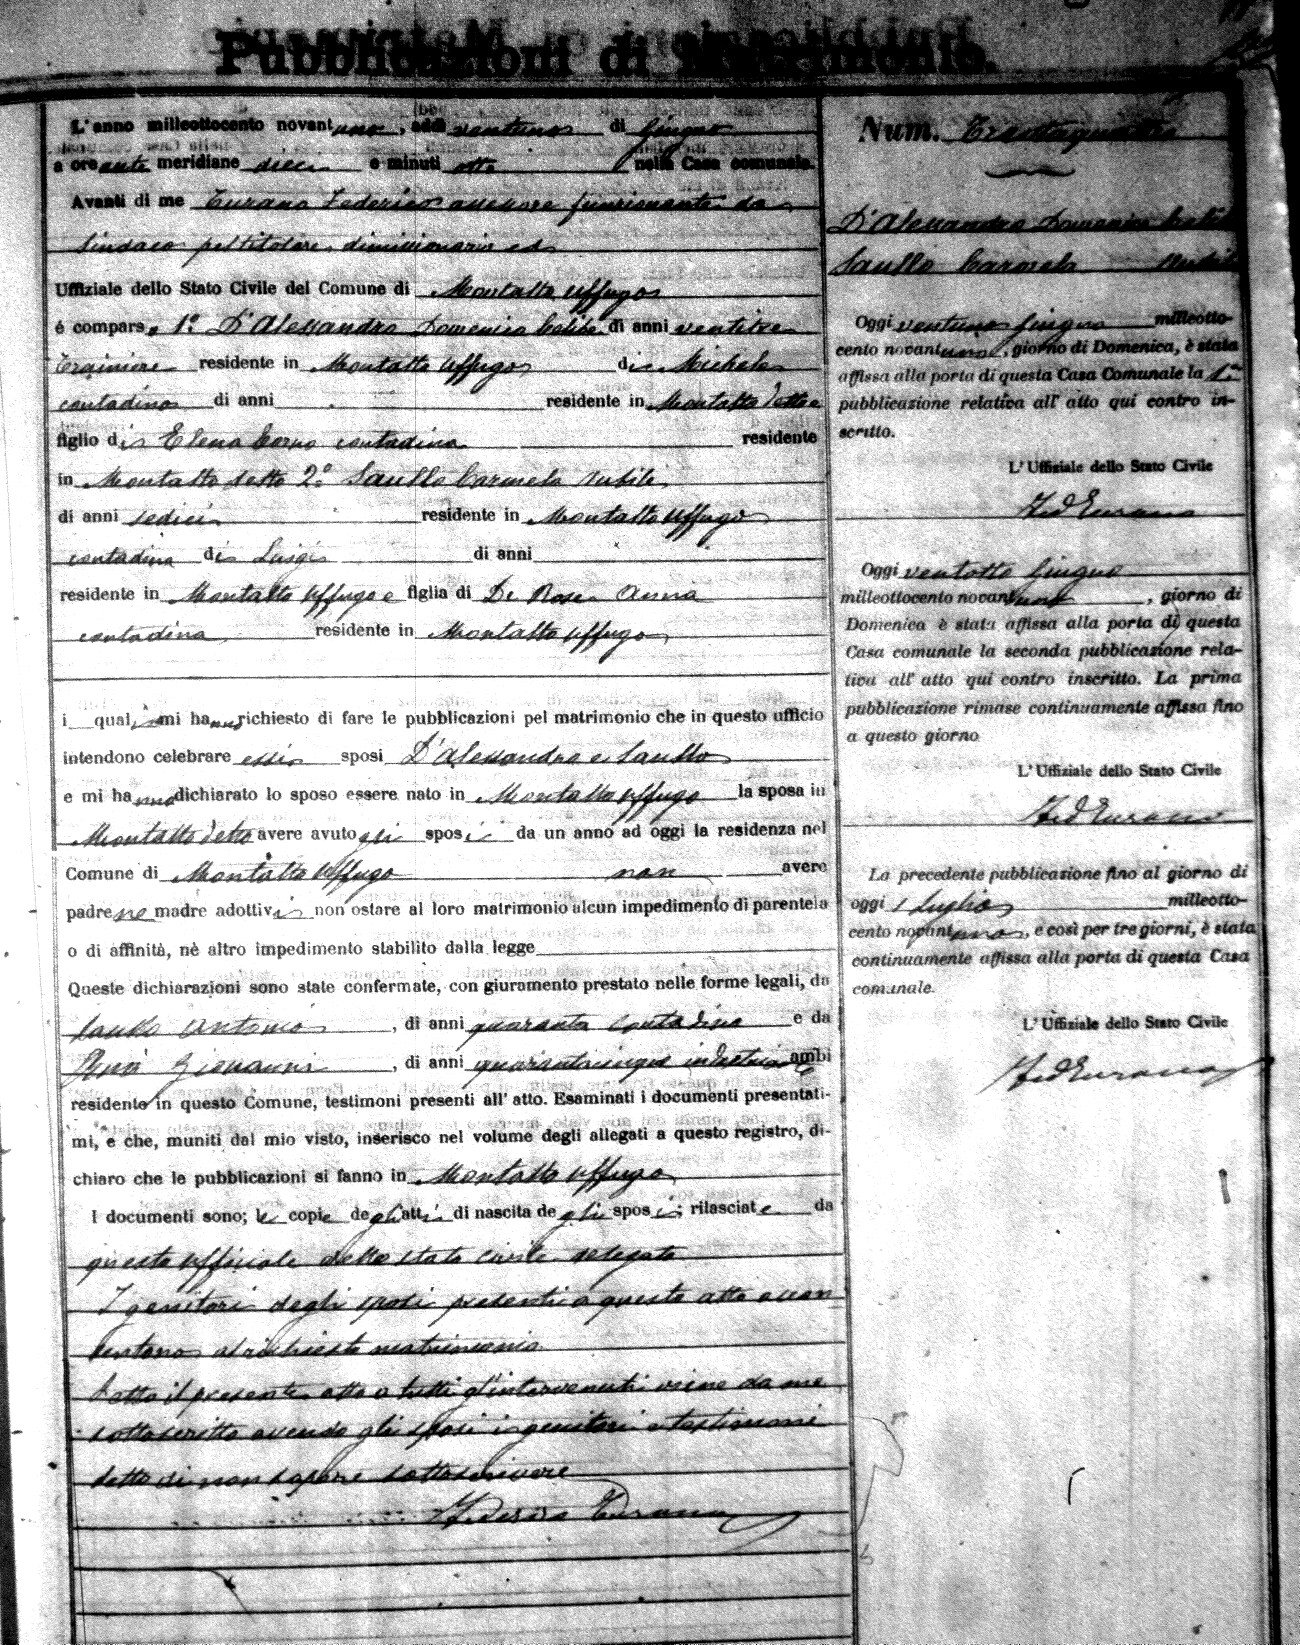 Pubblicazioni di Matrimonio.
L'anno milleottocento novantuno, addì ventuno di Giugno
a ore ante meridiane dieci e minuti otto nella Casa comunale.
Avanti di me Turano Federico assessore funzionante da
Sindaco pel titolare dimissionario ed
Uffiziale dello Stato Civile del Comune di Montalto Uffugo
é comparso 1º D'Alessandro Domenico Celibe di anni ventitre
trainiere residente in Montalto Uffugo di Michele
contadino di anni residente in Montalto detto e
figlio di Elena Corno contadina residente
in Montalto detto 2º Saullo Carmela Nubile
di anni sedici residente in Montalto Uffugo
contadina di Luigi di anni
residente in Montalto Uffugo e figlia di De Rose Anna
contadina residente in Montalto Uffugo
i quali mi hanno richiesto di fare le pubblicazioni pel matrimonio che in questo ufficio
intendono celebrare essi sposi D'Alessandro e Saullo
e mi hanno dichiarato lo sposo essere nato in Montalto Uffugo la sposa in
Montalto detto avere avuto gli sposi da un anno ad oggi la residenza nel
Comune di Montalto Uffugo non avere
padre ne madre adottivi non ostare al loro matrimonio alcun impedimento di parentela
o di affinità, nè altro impedimento stabilito dalla legge
Queste dichiarazioni sono state confermate, con giuramento prestato nelle forme legali, da
Saullo Antonio, di anni quaranta contadino e da
Giovanni, di anni quarantacinque industriante ambi
residente in questo Comune, testimoni presenti all'atto. Esaminati i documenti presentati-
mi, e che, muniti dal mio visto, inserisco nel volume degli allegati a questo registro, di-
chiaro che le pubblicazioni si fanno in Montalto Uffugo
I documenti sono; le copie degli atti di nascita degli sposi; rilasciate da
questo Ufficiale dello stato civile delegato
I genitori degli sposi presenti a questo atto accon
sentono al richiesto matrimonio
Letto il presente atto a tutti gl'intervenuti viene da me
sottoscritto avendo gli sposi i genitori e testimoni
detto di non sapere sottoscrivere
Federico Turano
Num. Trentaquattro
D'Alessandro Domenico Celibe
Saullo Carmela Nubile
Oggi ventuno Giugno milleotto-
cento novantuno, giorno di Domenica, è stata
affissa alla porta di questa Casa Comunale la 1ª
pubblicazione relativa all'atto qui contro in-
scritto.
L'Uffiziale dello Stato Civile
Fed Turano
Oggi ventotto Giugno
milleottocento novantuno, giorno di
Domenica è stata affissa alla porta di questa
Casa comunale la seconda pubblicazione rela-
tiva all'atto qui contro inscritto. La prima
pubblicazione rimase continuamente affissa fino
a questo giorno
L'Uffiziale dello Stato Civile
Fed Turano
La precedente pubblicazione fino al giorno di
oggi 1 Luglio milleotto-
cento novantuno, e così per tre giorni, è stata
continuamente affissa alla porta di questa Casa
comunale.
L'Uffiziale dello Stato Civile
Fed Turano